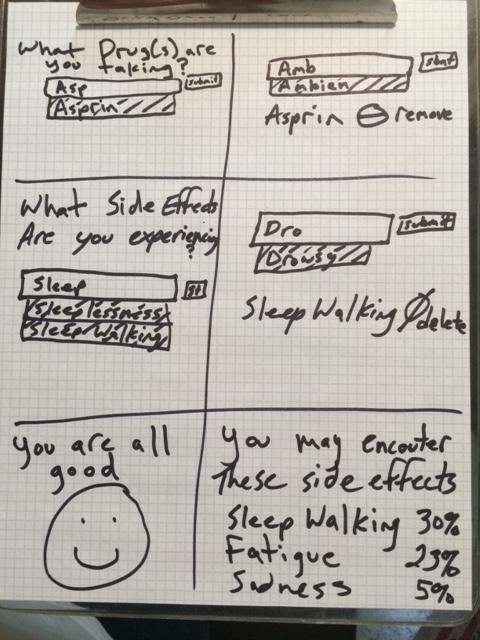 What Drug(s) are
you taking?
Asp submit
Asprin
Amb sbmt
Ambien
Asprin remove
What Side Effects
Are you experiencing
?
Sleep st
Sleeplessness
Sleep Walking
Dro submit
Drowsy
Sleep Walking delete
you are all
good
You may encouter
These side effects
Sleep Walking 30%
Fatigue 23%
Sadness 5%